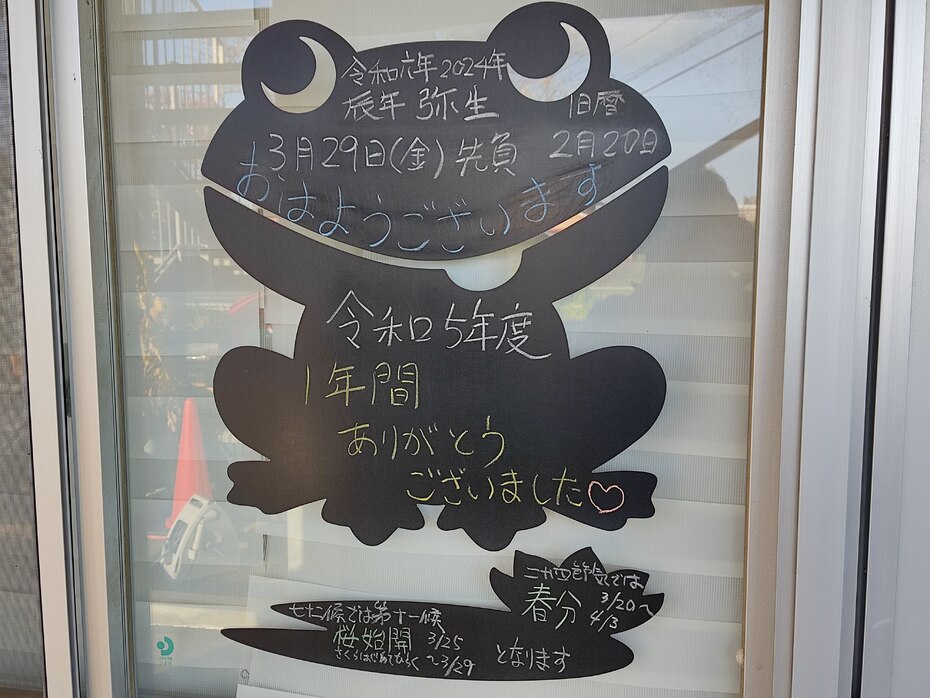 令和六年2024年
辰年 弥生 旧暦
3月29日(金)先負 2月20日
おはようございます
令和5年度
1年間
ありがとう
ございました♡
二十四節気では
春分 3/20〜
4/3
七十二候では第十一候
桜始開 3/25
さくらはじめてひらく 〜3/29
となります